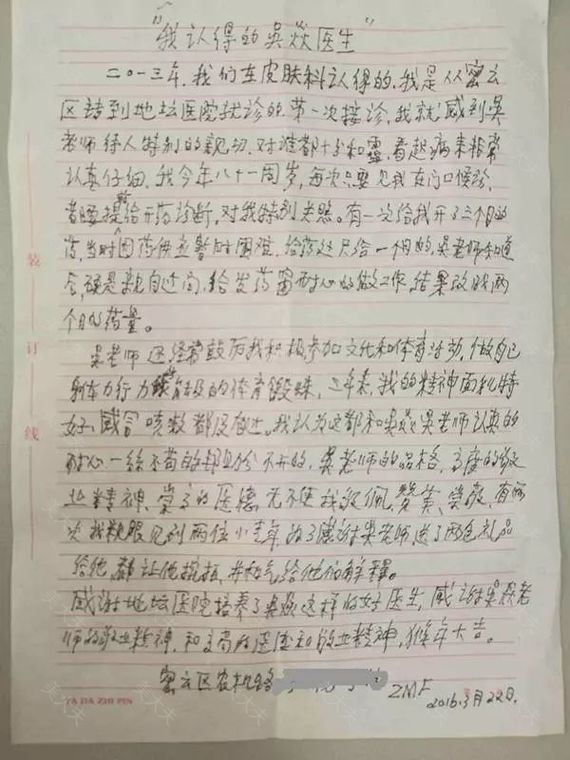 "我认得的吴焱医生"
二〇一三年,我们在皮肤科认得的,我是从密云
区转到地坛医院就诊的,第一次接诊,我就感到吴
老师待人特别的亲切,对谁都十分和霭,看起病来非常
认真仔细,我今年八十一周岁,每次只要见我在门口候诊,
者要提前给开药诊断,对我特别关照。有一次给我开了三个月的
药,当时因药供应暂时困难,药达只给一个月的,吴老师知道
后,硬是亲自过问,给发药窗耐心的做工作,结果改成两
个月的药量。
吴老师还经常鼓励我积极参加文化和体育活动,做自己
身体力行力所能及的体育锻炼,三年来,我的精神面貌特
好,感冒咳嗽都没有过。我认为这都和吴焱吴老师认真的
耐心一丝不苟的帮助分不开的,吴老师的品格,高度的敬
业精神,崇高的医德,无不使我敬佩,赞美,崇敬,有两
次我亲眼见到两位小青年,为了感谢吴老师,送了两包礼品
给他,都让他婉拒,并和气给他们解释。
感谢地坛医院培养了吴焱这样的好医生,感谢吴焱老
师的敬业精神,和高尚的医德和敬业精神,猴年大吉。
密云区农机路
ZMF
2016.3月22日.
装
订
线
YA DA ZHI PIN